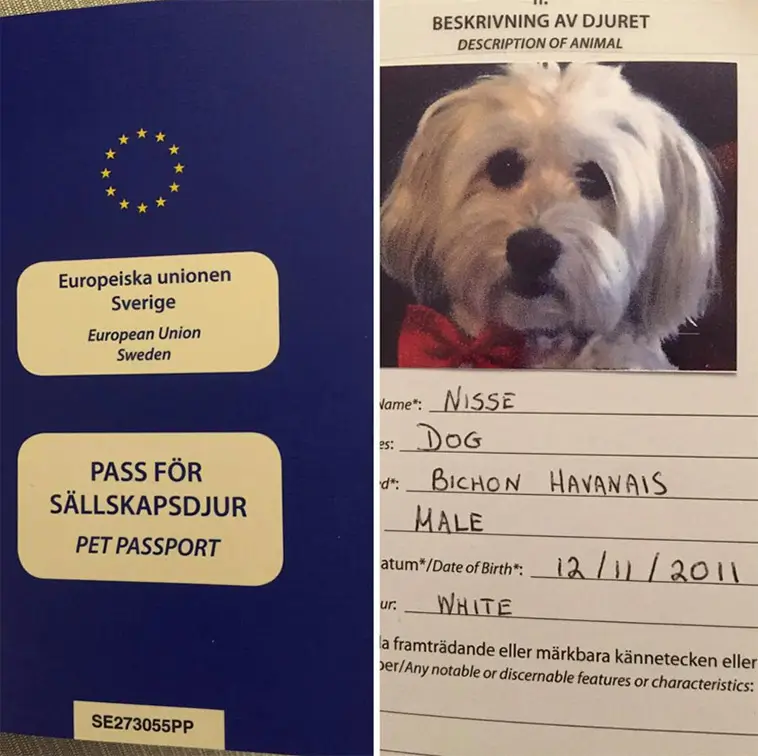 Europeiska unionen
Sverige
European Union
Sweden
PASS FÖR
SÄLLSKAPSDJUR
PET PASSPORT
SE273055PP
II.
BESKRIVNING AV DJURET
DESCRIPTION OF ANIMAL
Name*: NISSE
es: DOG
d*: BICHON HAVANAIS
MALE
atum*/Date of Birth*: 12/11/2011
ur: WHITE
a framträdande eller märkbara kännetecken eller
per/Any notable or discernable features or characteristics: